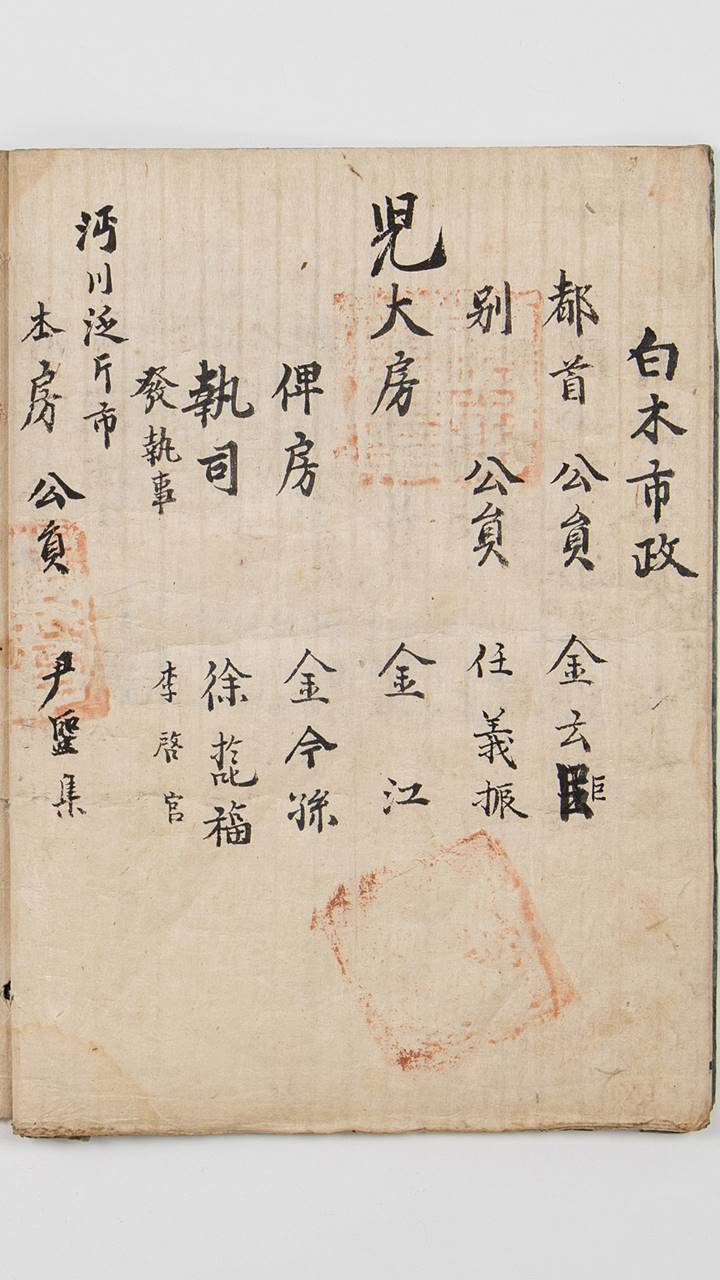 白木市政
都首 公員 金玄 巨
別 公員 任義振
児大房 金江
俾房 金今孫
執司 徐 福
發執事 李啓官
沔川泛斤市
本房 公員 尹聖集